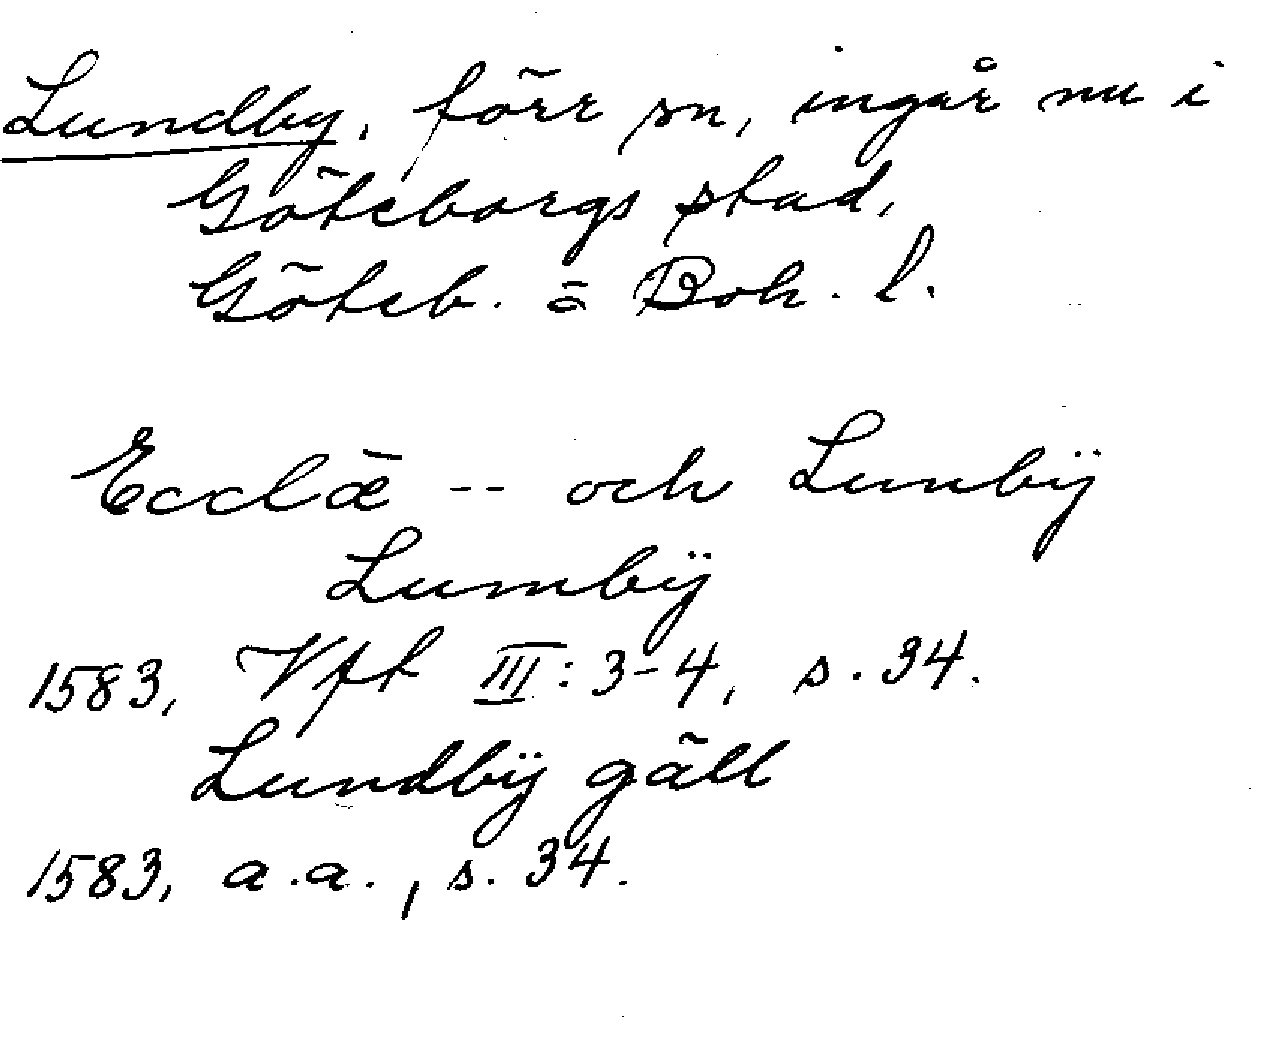 Lundby, förr sn, ingår nu i
Göteborgs stad,
Göteb. o. Boh. l.
Ecclǣ -- och Lunbÿ
Lumbÿ
1583, Vft III: 3-4, s. 34.
Lundbÿ gäll
1583, a.a., s. 34.